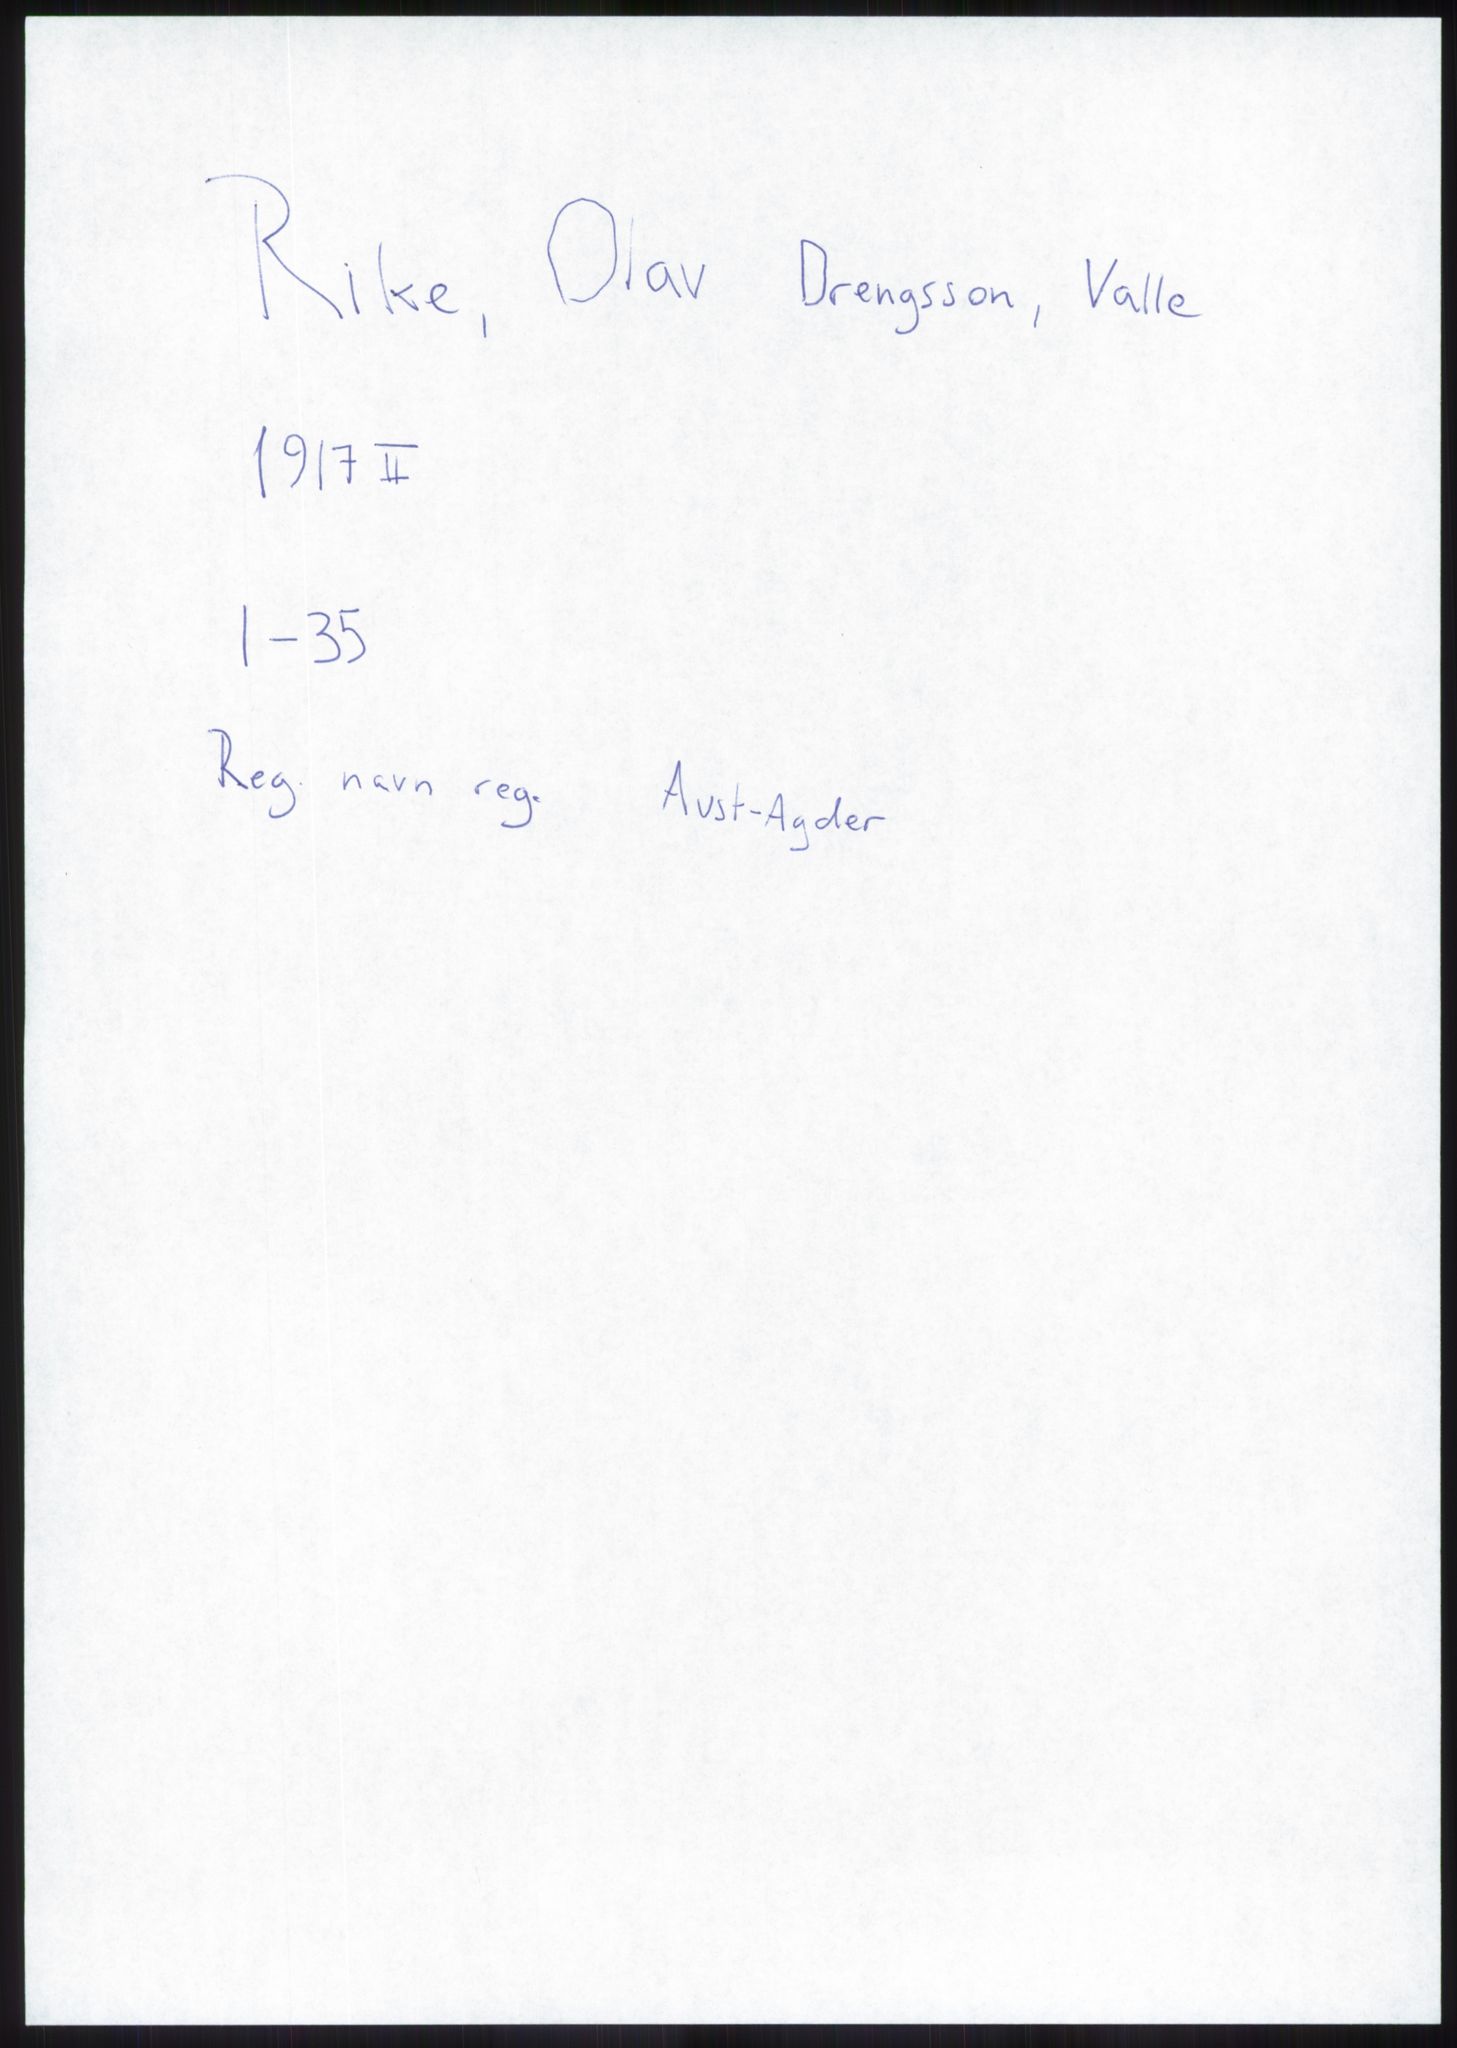 Rike, Olav Drengsson, Valle
1917 II
1-35
Reg. navn reg. Aust-Agder